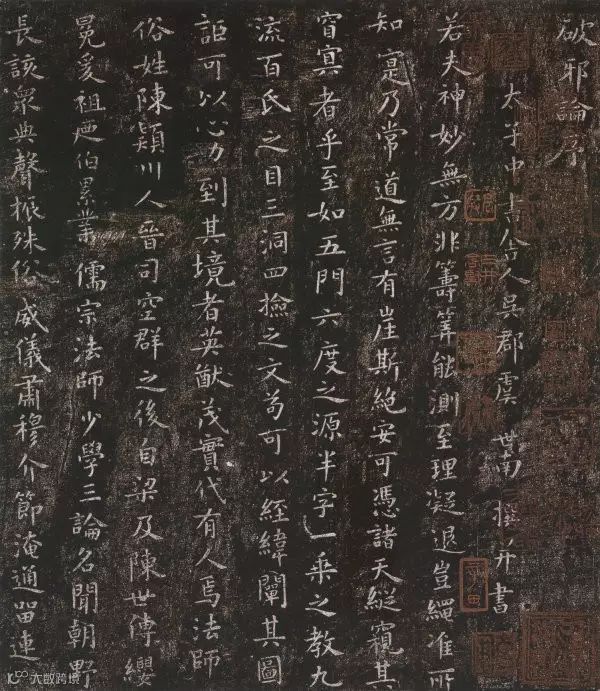 破邪論序
太子中書舍人吳郡虞世南撰并書
若夫神妙無方非籌筭能測至理凝退豈繩准所
知寔乃常道無言有崖斯絕安可憑諸天縱窺其
窅冥者乎至如五門六度之源半字一乘之教九
流百氏之目三洞四撿之文苟可以經緯闡其圖
詎可以心力到其境者英猷茂實代有人焉法師
俗姓陳潁川人晉司空群之後自梁及陳世傳纓
冕爰祖迺伯累業儒宗法師少學三論名聞朝野
長該衆典聲振殊俗威儀肅穆介節淹通留連
大数跨境